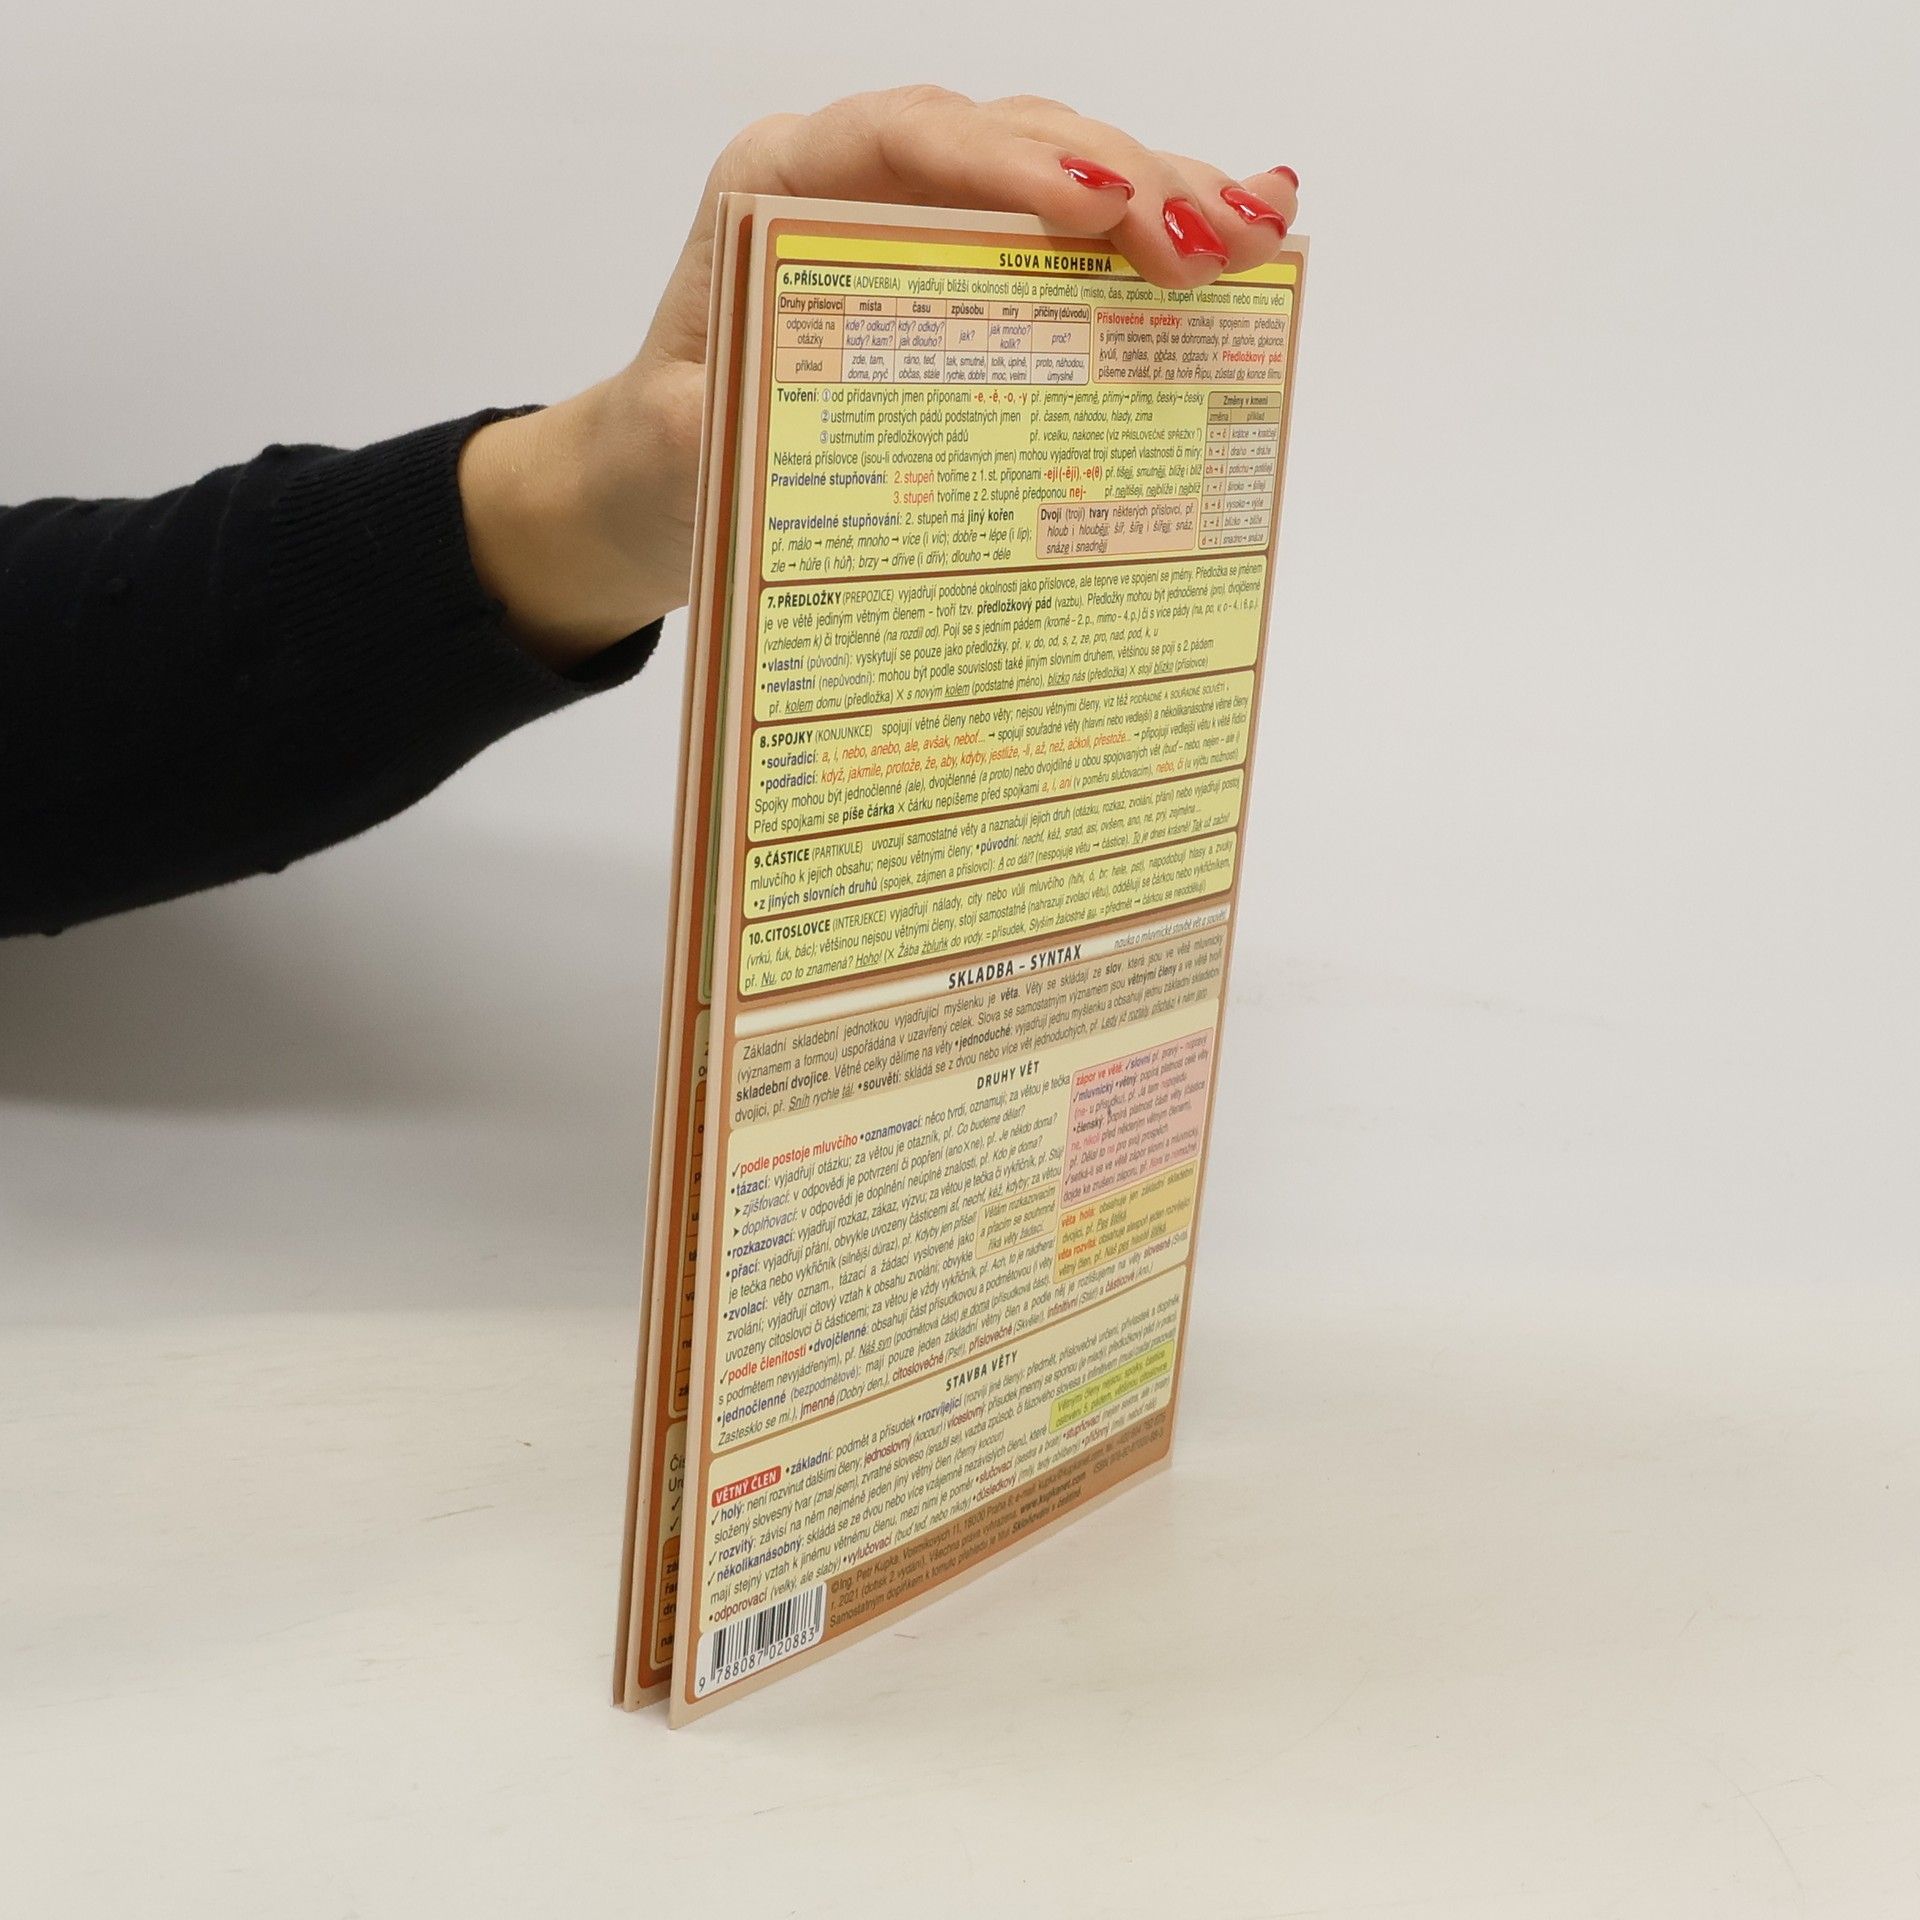 SLOVA NEOHEBNÁ
6. PŘÍSLOVCE (ADVERBIA) vyjadřují bližší okolnosti dějů a předmětů (místo, čas, způsob...), stupeň vlastnosti nebo míru věci
Druhy příslovcí místa času způsobu míry příčiny (důvodu)
odpovídá na otázky kde? odkud? kudy? kam? kdy? odkdy? jak dlouho? jak? jak mnoho? kolik? proč?
příklad zde, tam, doma, pryč ráno, teď, občas, stále tak, smutně, rychle, dobře tolik, úplně, moc, velmi proto, náhodou, úmyslně
Příslovečné spřežky: vznikají spojením předložky
s jiným slovem, píší se dohromady, př. nahoře, dokonce,
kvůli, nahlas, občas, odzadu X Předložkový pád:
píšeme zvlášť, př. na hoře Řípu, zůstat do konce filmu
Tvoření: ① od přídavných jmen příponami -e, -ě, -o, -y př. jemný→jemně, přímý→přímo, český→česky
② ustrnutím prostých pádů podstatných jmen př. časem, náhodou, hlady, zima
③ ustrnutím předložkových pádů př. vcelku, nakonec (VIZ PŘÍSLOVEČNÉ SPŘEŽKY ↑)
Některá příslovce (jsou-li odvozena od přídavných jmen) mohou vyjadřovat trojí stupeň vlastnosti či míry:
Pravidelné stupňování: 2. stupeň tvoříme z 1. st. příponami -eji(-ěji), -e(θ) př. tišeji, smutněji, blíže i blíž
3. stupeň tvoříme z 2. stupně předponou nej- př. nejtišeji, nejblíže i nejblíž
Nepravidelné stupňování: 2. stupeň má jiný kořen
př. málo → méně, mnoho → více (i víc); dobře → lépe (i líp);
zle → hůře (i hůř); brzy → dříve (i dřív); dlouho → déle
Dvojí (trojí) tvary některých příslovcí, př.
hloub i hlouběji; šíř, šíře i šířeji; snáz,
snáze i snadněji
Změny v kmeni
změna příklad
c → č krátce → kratčeji
h → ž draho → dráže
ch → š potichu → potišeji
r → ř široko → šířeji
s → š vysoko → výše
z → ž blízko → blíže
d → z snadno → snáze
7. PŘEDLOŽKY (PREPOZICE) vyjadřují podobné okolnosti jako příslovce, ale teprve ve spojení se jmény. Předložka se jménem
je ve větě jediným větným členem – tvoří tzv. předložkový pád (vazbu). Předložky mohou být jednočlenné (pro), dvojčlenné
(vzhledem k) či trojčlenné (na rozdíl od). Pojí se s jedním pádem (kromě - 2. p., mimo - 4. p.) či s více pády (na, po, v, o - 4. i 6. p.).
•vlastní (původní): vyskytují se pouze jako předložky, př. v, do, od, s, z, ze, pro, nad, pod, k, u
•nevlastní (nepůvodní): mohou být podle souvislosti také jiným slovním druhem, většinou se pojí s 2. pádem
př. kolem domu (předložka) X s novým kolem (podstatné jméno), blízko nás (předložka) X stojí blízko (příslovce)
8. SPOJKY (KONJUNKCE) spojují větné členy nebo věty; nejsou větnými členy, viz též PODŘADNÉ A SOUŘADNÉ SOUVĚTÍ
•souřadicí: a, i, nebo, anebo, ale, avšak, neboť... → spojují souřadné věty (hlavní nebo vedlejší) a několikanásobné větné členy
•podřadicí: když, jakmile, protože, že, aby, kdyby, jestliže, -li, až, než, ačkoli, přestože... → připojují vedlejší větu k větě řídící
Spojky mohou být jednočlenné (ale), dvojčlenné (a proto) nebo dvojdílné u obou spojovaných vět (buď – nebo, nejen – ale i)
Před spojkami se píše čárka X čárku nepíšeme před spojkami a, i, ani (v poměru slučovacím), nebo, či (u výčtu možností)
9. ČÁSTICE (PARTIKULE) uvozují samostatné věty a naznačují jejich druh (otázku, rozkaz, zvolání, přání) nebo vyjadřují postoj
mluvčího k jejich obsahu; nejsou větnými členy; •původní: nechť, kéž, snad, asi, ovšem, ano, ne, prý, zejména...
•z jiných slovních druhů (spojek, zájmen a příslovcí): A co dál? (nespojuje větu → částice). To je dnes krásně! Tak už začni!
10. CITOSLOVCE (INTERJEKCE) vyjadřují nálady, city nebo vůli mluvčího (hihi, ó, br; hele, pst), napodobují hlasy a zvuky
(vrkú, ťuk, bác); většinou nejsou větnými členy, stojí samostatně (nahrazují zvolací větu), oddělují se čárkou nebo vykřičníkem,
př. Nu, co to znamená? Hoho! (X Žába žbluňk do vody. =přísudek, Slyším žalostné au. =předmět → čárkou se neoddělují)
SKLADBA – SYNTAX
nauka o mluvnické stavbě vět a souvětí
Základní skladební jednotkou vyjadřující myšlenku je věta. Věty se skládají ze slov, která jsou ve větě mluvnicky
(významem a formou) uspořádána v uzavřený celek. Slova se samostatným významem jsou větnými členy a ve větě tvoří
skladební dvojice. Větné celky dělíme na věty •jednoduché: vyjadřují jednu myšlenku a obsahují jednu základní skladební
dvojici, př. Sníh rychle tál. •souvětí: skládá se z dvou nebo více vět jednoduchých, př. Ledy již roztály, přichází k nám jaro.
DRUHY VĚT
✓podle postoje mluvčího •oznamovací: něco tvrdí, oznamují; za větou je tečka
•tázací: vyjadřují otázku; za větou je otazník, př. Co budeme dělat?
➤zjišťovací: v odpovědi je potvrzení či popření (ano X ne), př. Je někdo doma?
➤doplňovací: v odpovědi je doplnění neúplné znalosti, př. Kdo je doma?
•rozkazovací: vyjadřují rozkaz, zákaz, výzvu; za větou je tečka či vykřičník, př. Stůj!
•přací: vyjadřují přání, obvykle uvozeny částicemi ať, nechť, kéž, kdyby; za větou
je tečka nebo vykřičník (silnější důraz), př. Kdyby jen přišel!
•zvolací: věty oznam., tázací a žádací vyslovené jako
zvolání; vyjadřují citový vztah k obsahu zvolání; obvykle
uvozeny citoslovci či částicemi; za větou je vždy vykřičník, př. Ach, to je nádhera!
Větám rozkazovacím
a přacím se souhrnně
říká věty žádací.
zápor ve větě: ✓slovní př. pravý – nepravý
✓mluvnický •větný: popírá platnost celé věty
(ne- u přísudku), př. Já tam nepojedu
•členský: popírá platnost části věty (částice
ne, nikoli před některým větným členem),
př. Dělal to ne pro svůj prospěch.
✓setká-li se ve větě zápor slovní a mluvnický,
dojde ke zrušení záporu, př. Není to nemožné
věta holá: obsahuje jen základní skladební
dvojici, př. Pes štěká.
věta rozvitá: obsahuje alespoň jeden rozvíjející
větný člen, př. Náš pes hlasitě štěká.
✓podle členitosti •dvojčlenné: obsahují část přísudkovou a podmětovou (i věty
s podmětem nevyjádřeným), př. Náš syn (podmětová část) je doma (přísudková část).
•jednočlenné (bezpodmětové): mají pouze jeden základní větný člen a podle něj je rozlišujeme na věty slovesné (Svítá.
Zastesklo se mi.), jmenné (Dobrý den.), citoslovečné (Pst!), příslovečné (Skvěle!), infinitivní (Stát!) a částicové (Ano.)
STAVBA VĚTY
VĚTNÝ ČLEN •základní: podmět a přísudek •rozvíjející (rozvíjí jiné členy): předmět, příslovečné určení, přívlastek a doplněk
✓holý: není rozvinut dalšími členy; jednoslovný (kocour) i víceslovný: přísudek jmenný se sponou (je mladý), předložkový pád (v práci)
složený slovesný tvar (znal jsem), zvratné sloveso (snažil se), vazba způsob. či fázového slovesa s infinitivem (musí/začal pracovat)
✓rozvitý: závisí na něm nejméně jeden jiný větný člen (černý kocour)
✓několikanásobný: skládá se ze dvou nebo více vzájemně nezávislých členů, které
mají stejný vztah k jinému větnému členu, mezi nimi je poměr •slučovací (sestra a bratr) •stupňovací (nejen sestra, ale i bratr)
•odporovací (velký, ale slabý) •vylučovací (buď teď, nebo nikdy) •důsledkový (milý, tedy oblíbený) •příčinný (milý, neboť náš)
Větnými členy nejsou: spojky, částice,
oslovení 5. pádem, většinou citoslovce
©Ing. Petr Kupka, Vosmíkových 11, 18000 Praha 8, e-mail: kupka@kupkanet.com
r. 2021 (dotisk 2. vydání). Všechna práva vyhrazena. www.kupkanet.com
Samostatným doplňkem k tomuto přehledu je titul Skloňování v češtině.
9 788087 020883